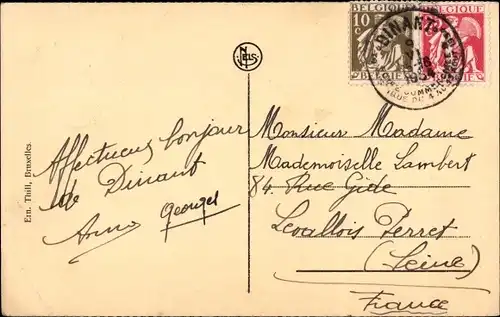 10
c
BELGIQUE
BELGIE
BELGIQUE
BELGIE
DINANT
1934
NELS
Affectueux bonjour
de Dinant
Georges
Monsieur Madame
Mademoiselle Lambert
84 Rue Gide
Levallois Perret
(Seine)
France
Ern. Thill, Bruxelles